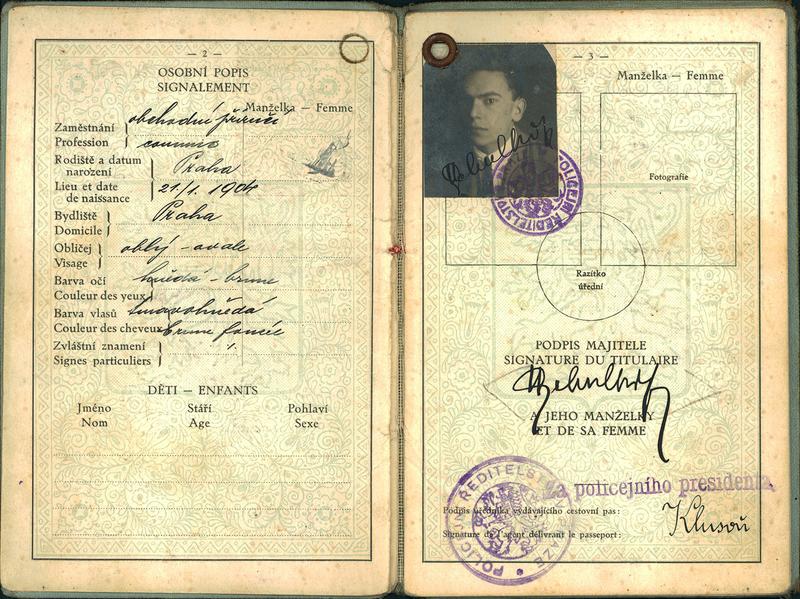 — 2 —
OSOBNÍ POPIS
SIGNALEMENT
Manželka — Femme
Zaměstnání
Profession
obchodní příručí
commis
Rodiště a datum
narození
Praha
Lieu et date
de naissance
21/1. 1904
Bydliště
Domicile
Praha
Obličej
Visage
oblý - ovale
Barva očí
Couleur des yeux
hnědá - brune
Barva vlasů
Couleur des cheveux
tmavohnědá
brune foncée
Zvláštní znamení
Signes particuliers
DĚTI — ENFANTS
Jméno Stáří Pohlaví
Nom Age Sexe
— 3 —
Manželka — Femme
Fotografie
POLICEJNÍ ŘEDITELSTVÍ
Razítko
úřední
PODPIS MAJITELE
SIGNATURE DU TITULAIRE
A JEHO MANŽELKY
ET DE SA FEMME
POLICEJNÍ ŘEDITELSTVÍ V PRAZE
za policejního presidenta
Podpis úředníka vydávajícího cestovní pas:
Signature de l'agent délivrant le passeport: